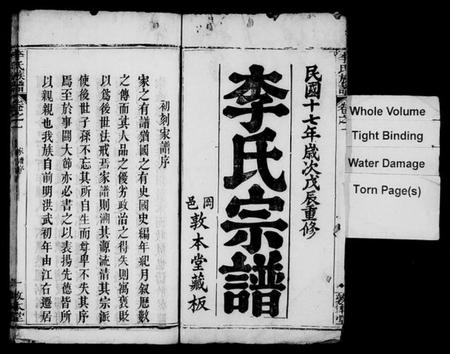 民國十七年歲次戊辰重修
李氏宗譜
岡邑
敦本堂藏板
初刻家譜序
家之有譜猶國之有史國史編年紀月叙歷數
之傳而其人品之優劣政治之得失則寓褒貶
以為後世法戒焉家譜則溯其源流清其宗派
使後世子孫不忘其所自生而尊卑不失其序
焉至於事關大節亦必書之以表揚先德皆所
以親親也我族自前明洪武初年由江右遷居
Whole Volume
Tight Binding
Water Damage
Torn Page(s)